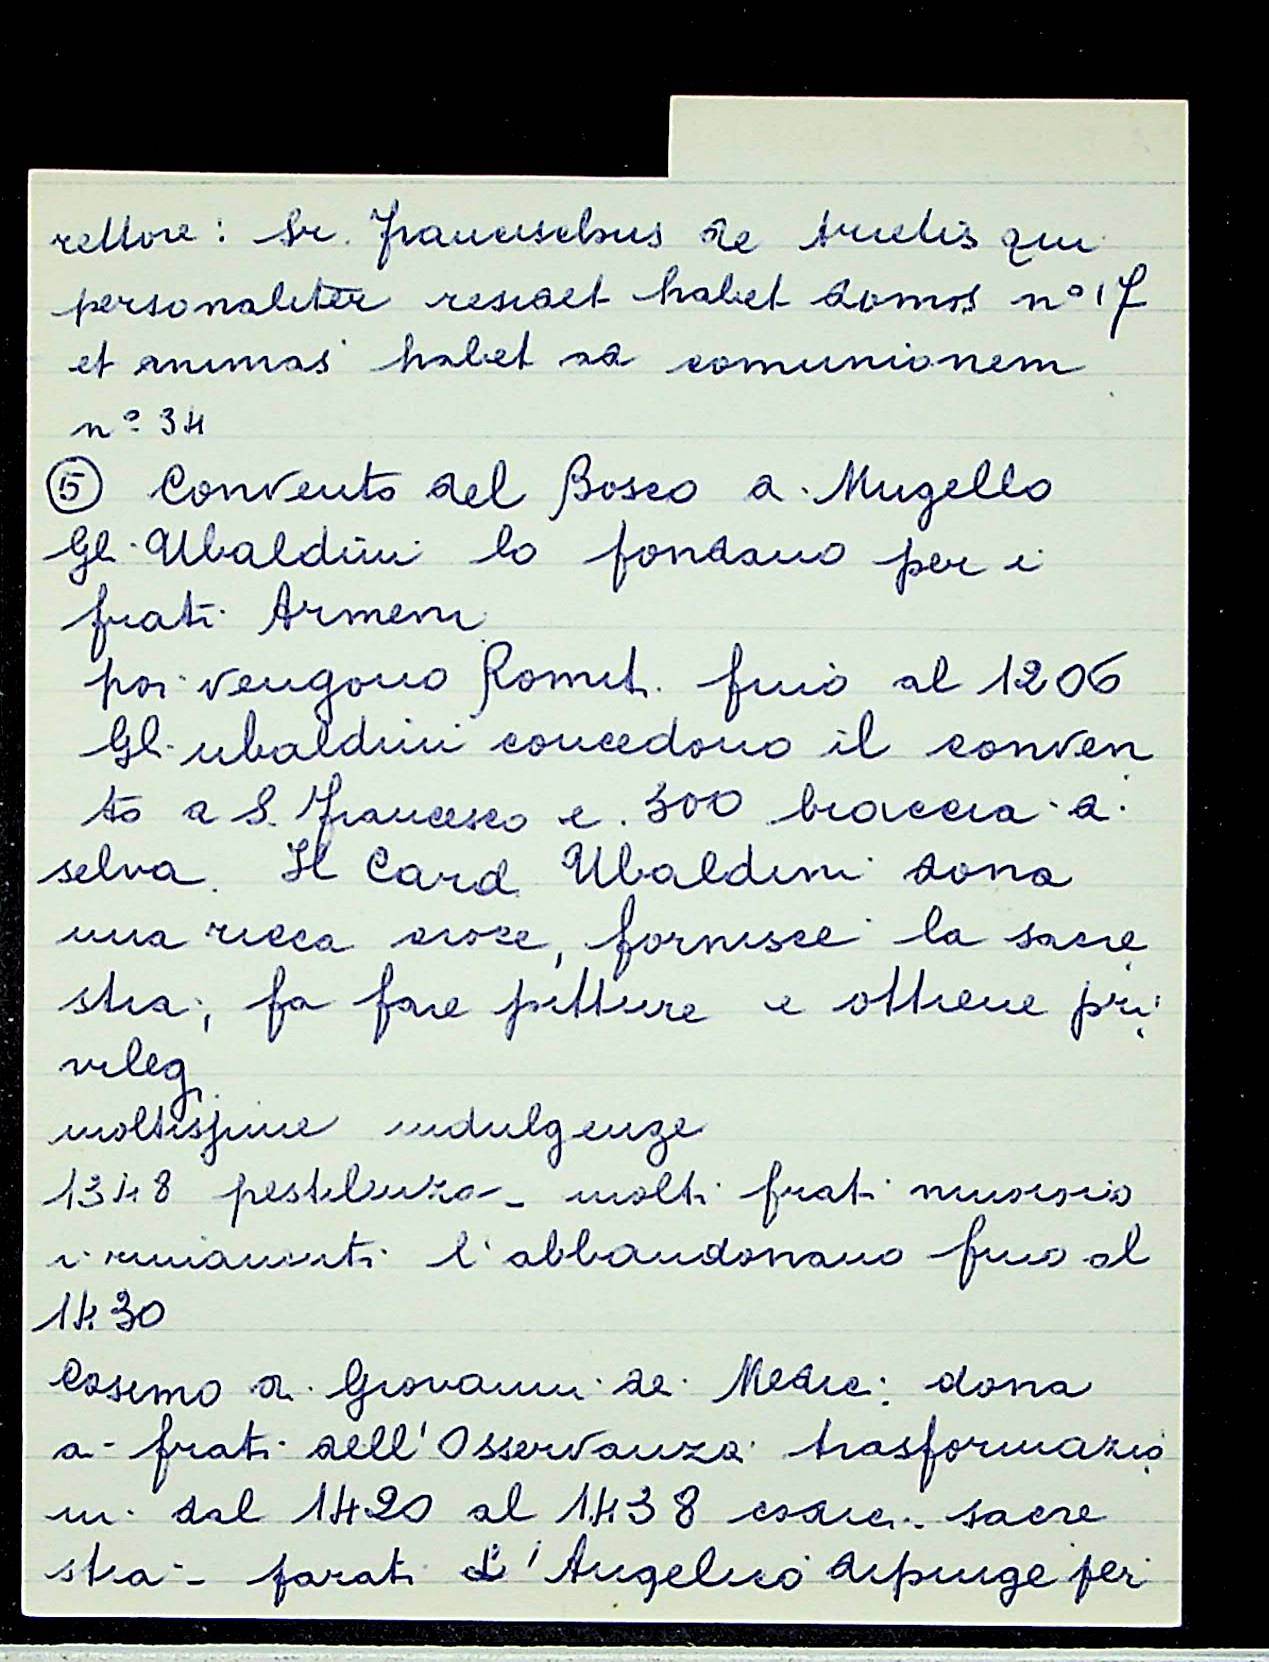 rettore: Sr. Franciscus de
personaliter residet habet domos n° 17
et animas habet ad comunionem
n° 34
⑤ Convento del Bosco a Mugello
Gli Ubaldini lo fondano per i
frati Armeni
poi vengono Romiti fino al 1206
Gli ubaldini concedono il conven
to a S. Francesco e 300 braccia di
selva. Il Card Ubaldini dona
una ricca croce, fornisce la sacre
stia, fa fare pitture e ottiene pri
vilegi
moltissime indulgenze
1348 pestilenza - molti frati muoiono
i rimanenti l'abbandonano fino al
1430
Cosimo di Giovanni de Medici dona
ai frati dell'Osservanza trasformazio
ni dal 1420 al 1438 codici - sacre
stia - parati L'Angelico dipinge per